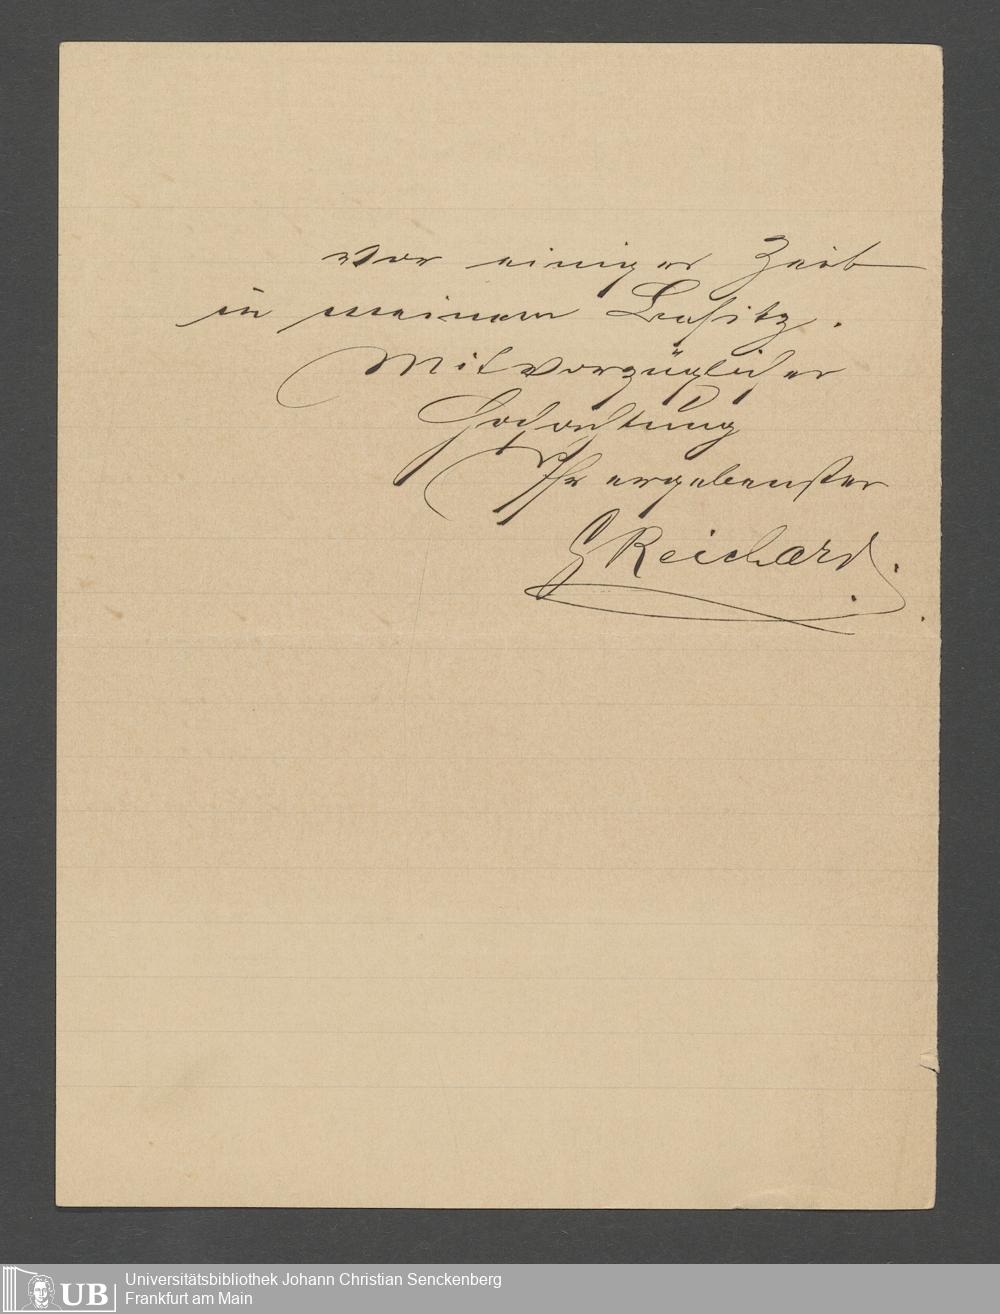 vor einiger Zeit
in meinem Besitz.
Mit vorzüglicher
Hochachtung
Ihr ergebenster
Reichard.
UB
Universitätsbibliothek Johann Christian Senckenberg
Frankfurt am Main